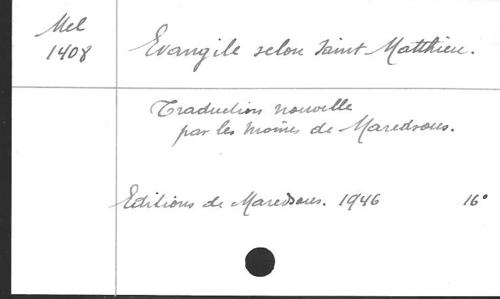 Mel
1408
Evangile selon Saint Matthieu.
Traduction nouvelle
par les moines de Maredsous.
Editions de Maredsous. 1946 16°